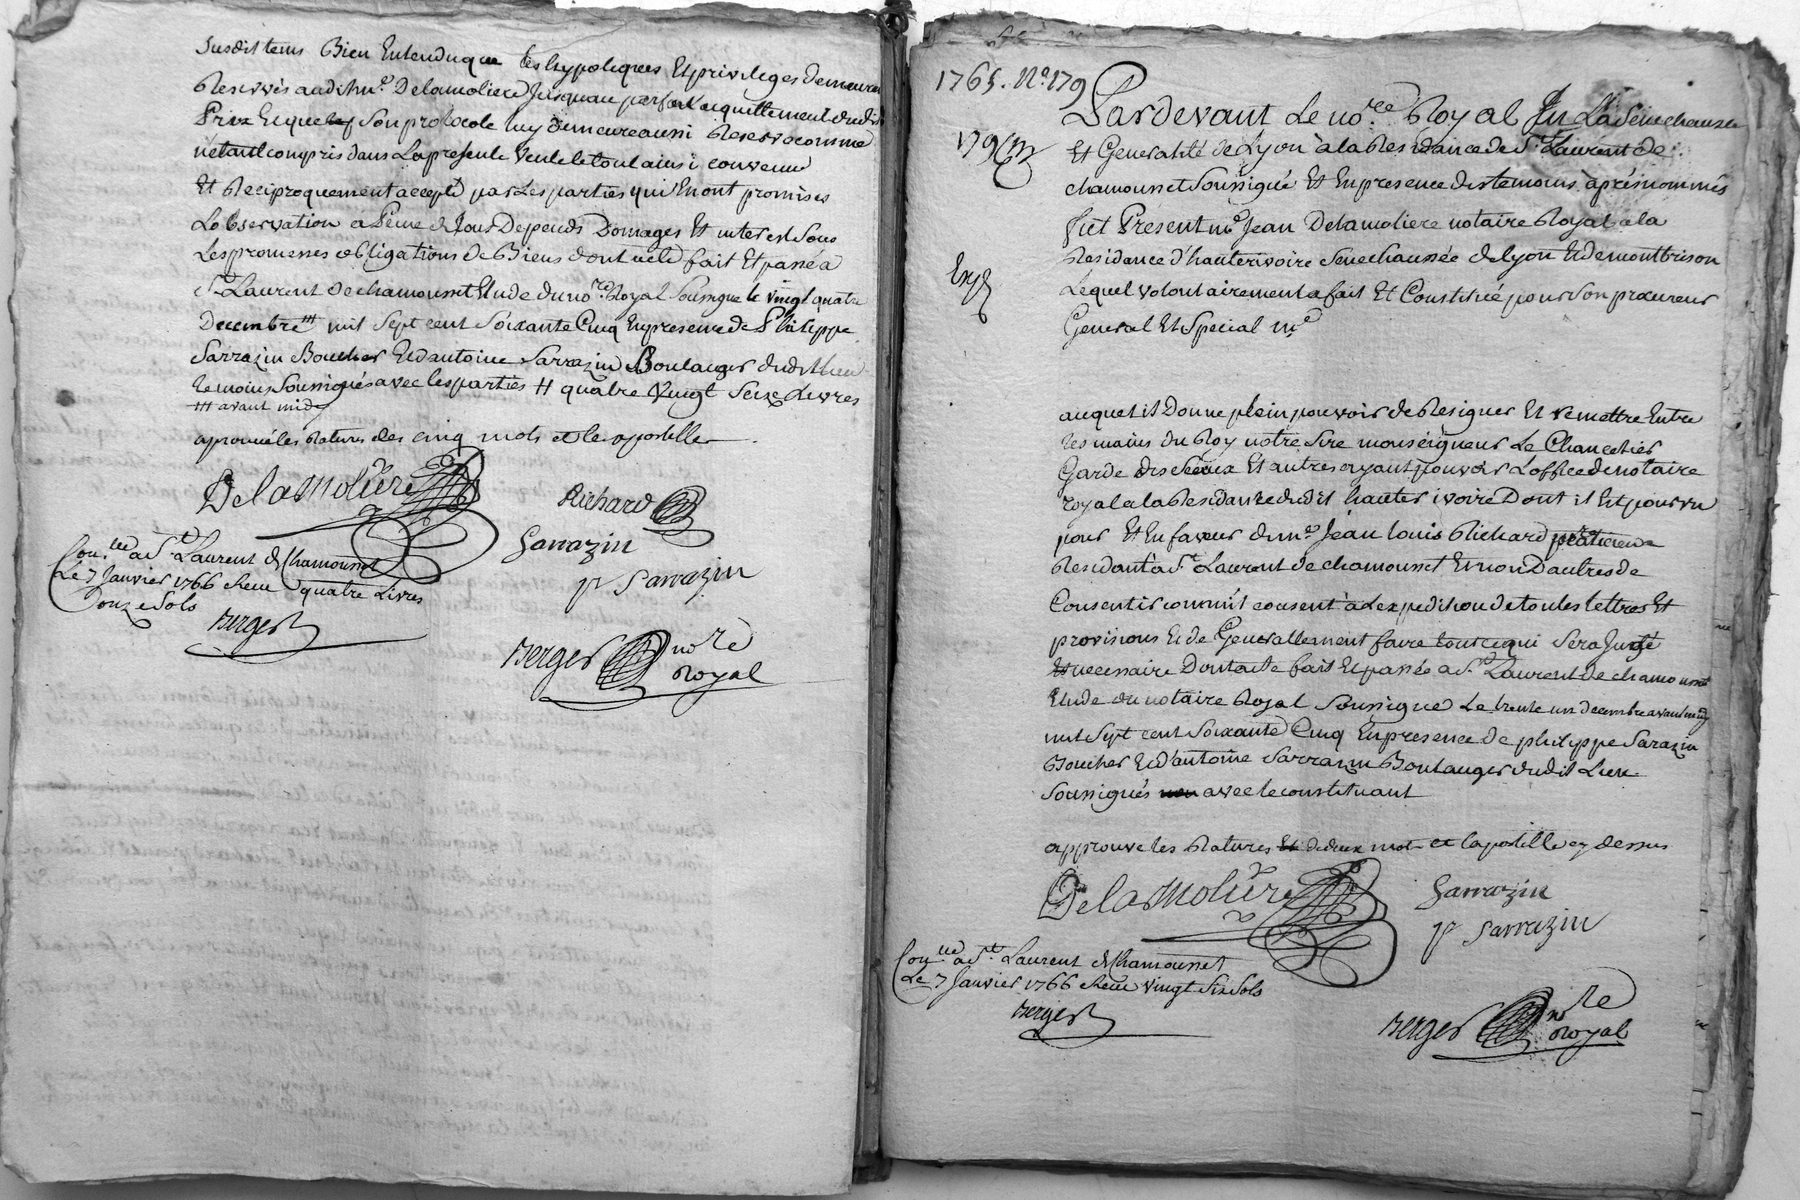 susdit tems Bien Entendu que les hypoteques Et privileges demeure
Reservés audit m.e Delamoliere Jusquau parfait aquittement dudit
Prix Et que son protocole luy demeure aussi Reservé comme
nétant compris dans La presente vente le tout ainsi convenu
Et Reciproquement accepté par Les parties qui En ont promises
Lobservation a Peine de Tous Depends Domages Et interest Sous
Les promesses obligations de Biens dont acte fait Et passé a
S.t Laurent de chamousset Etude du no.re Royal Soussigné le vingt quatre
Decembre ttt mil sept cent soixante Cinq En presence de Philippe
Sarrazin Boucher Et d'antoine Sarrazin Boulanger dudit Lieu
temoins Soussignés avec les parties # quatre Vingt Seize Livres
ttt avant midy
aprouvé les Ratures des cinq mots et les apostilles
Delamoliere
Richard
Sarrazin
p Sarrazin
Con.lle a S.t Laurent de Chamousset
Le 7 Janvier 1766 Receu quatre Livres
onze Sols
Berger
Berger no.re
Royal
1765. N.o 179
179
Exp
Pardevant Le no.re Royal En La Senechaussée
Et Generalité de Lyon à la Residance de S.t Laurent de
chamousset Soussigné Et En presence des temoins après nommés
fut Présent m.e Jean Delamoliere notaire Royal a la
Residance d'hauterivoire Senechaussée de Lyon Et de montbrison
Lequel volontairement a fait Et Constitué pour Son procureur
General Et Special m.e
auquel il Donne plein pouvoir de Resigner Et remettre Entre
les mains du Roy notre Sire monseigneur Le Chancelier
Garde des Sceaux Et autres ayant pouvoir L'office de notaire
royal a la Residance dudit hauterivoire Dont il Est pourvu
pour Et En faveur de m.e Jean Louis Richard praticien
Residant à S.t Laurent de chamousset Et non D'autres de
Consentir comm'il consent à L'expedition de toutes lettres Et
provisions Et de Generallement faire tout ce qui Sera Jugé
necessaire Dont acte fait Et passé a S.t Laurent de chamousset
Etude du notaire Royal Soussigné Le trente un decembre avant midy
mil Sept cent Soixante Cinq En presence de philippe Sarazin
Boucher Et d'antoine Sarrazin Boulanger dudit Lieu
Soussignés avec le constituant
approuvé les Ratures de deux mots et lapostille cy dessus
Delamoliere
Sarrazin
p Sarrazin
Con.lle a S.t Laurent de Chamousset
Le 7 Janvier 1766 Receu vingt Six Sols
Berger
Berger no.re
Royal